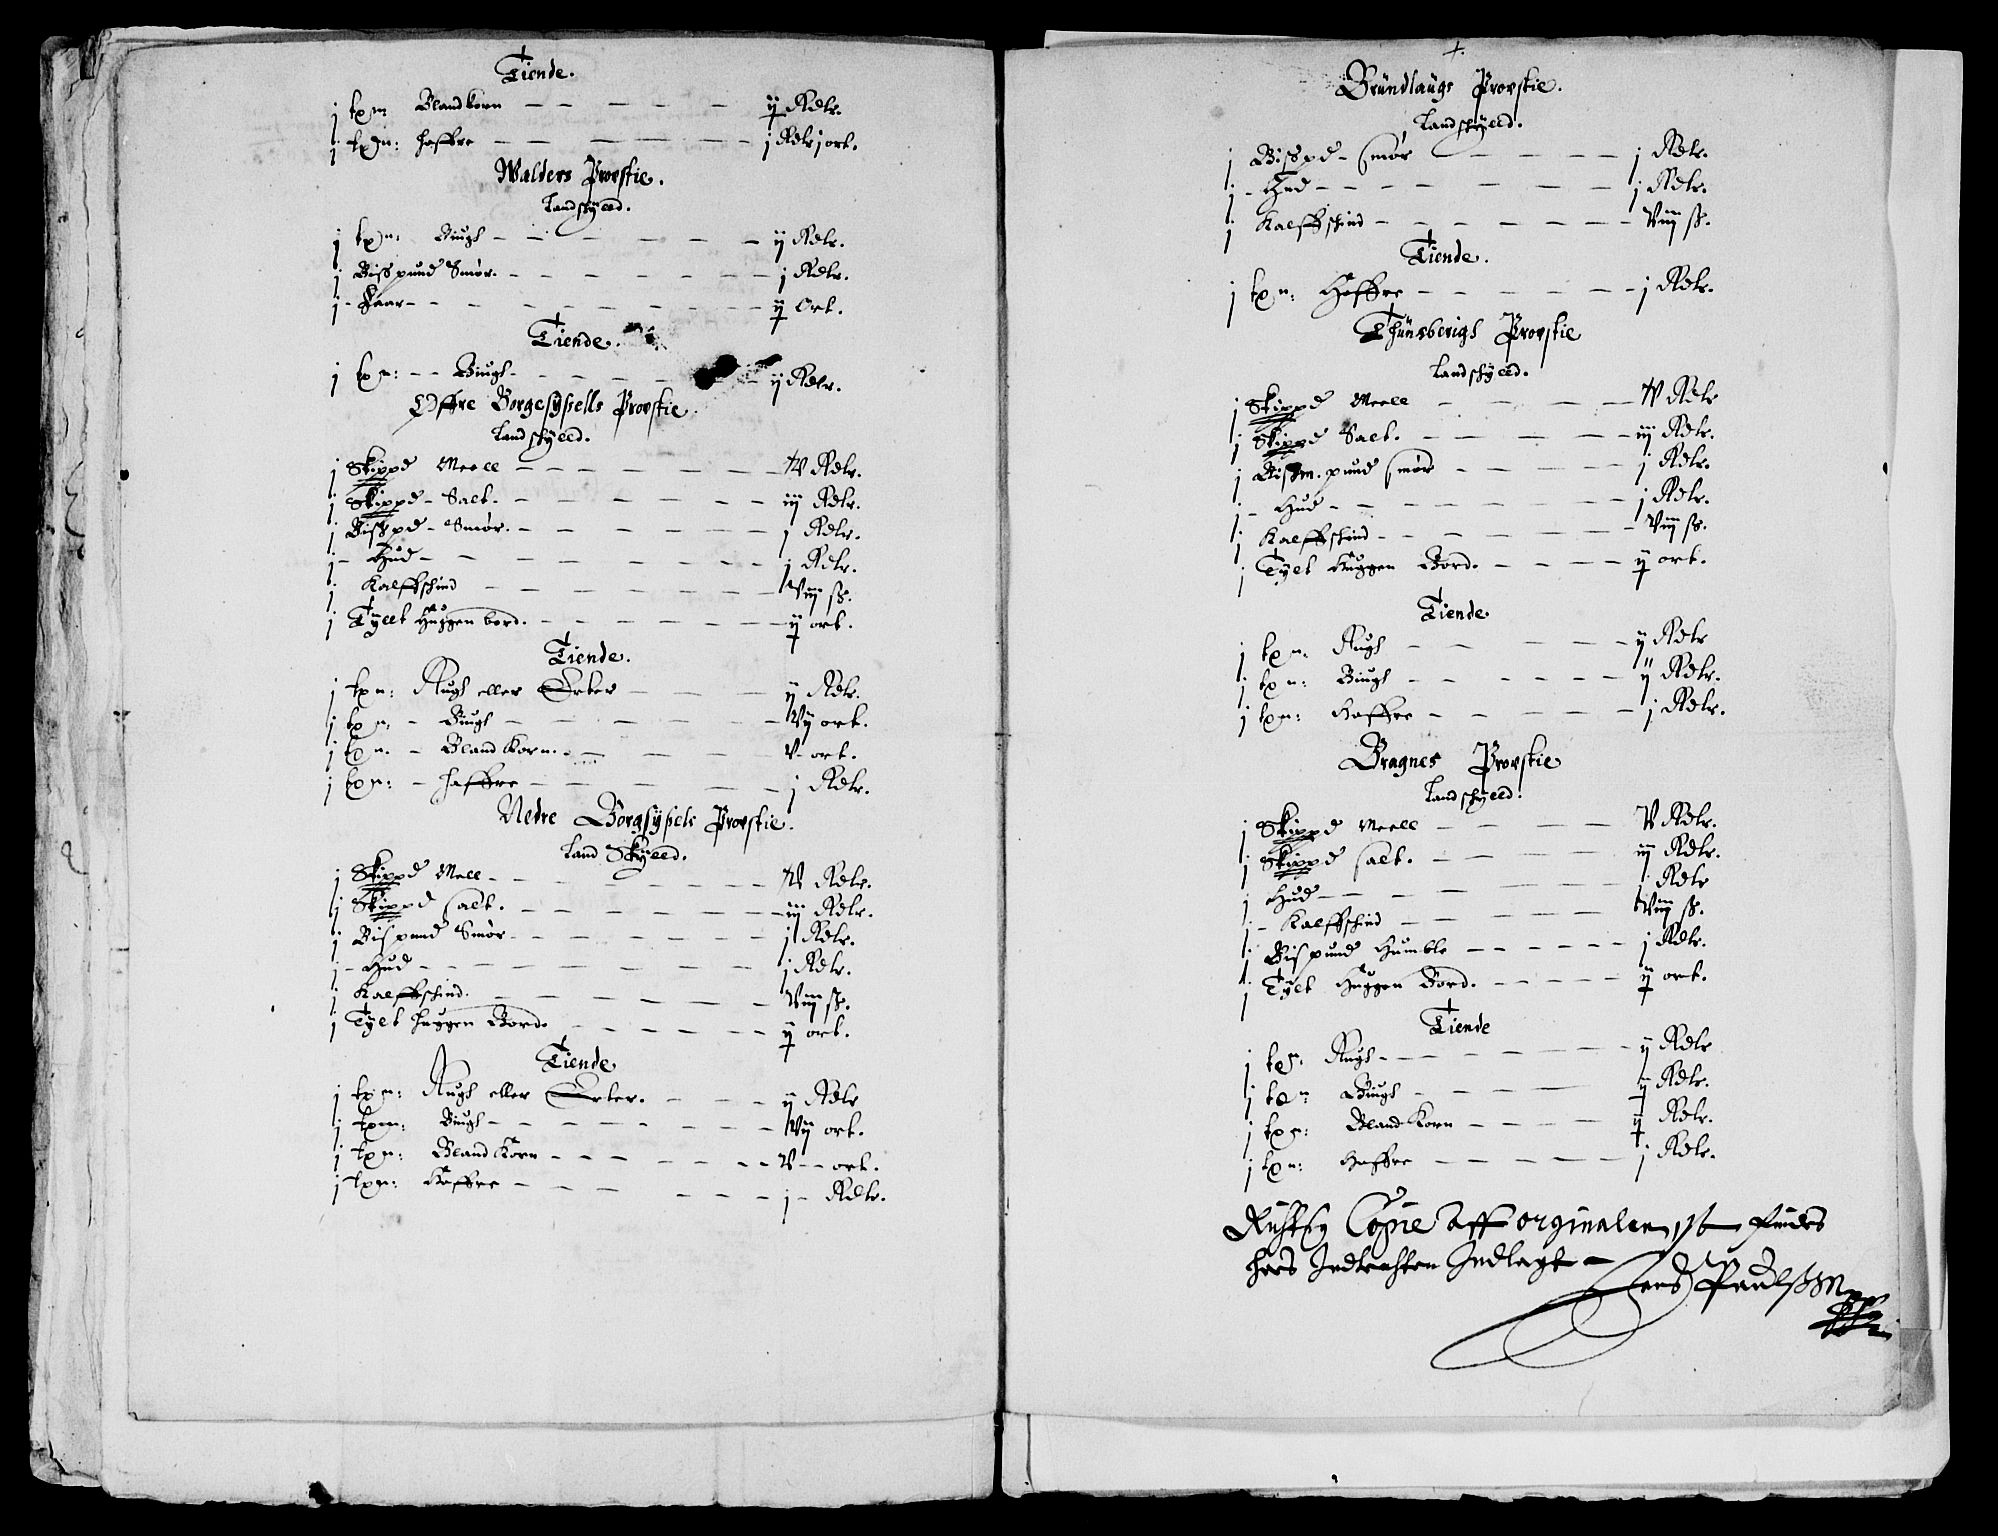 Tiende.
j tøn: Blandkorn — — — — — ij Rdlr.
j tøn: haffre — — — — — j Rdlr j ort.
Walders Provstie.
Landskyeld.
j tøn: Biugh — — — — — ij Rdlr.
j Bispund Smør. — — — — — j Rdlr.
j - Faar — — — — — ij Ort.
Tiende.
j tøn: — — Biugh — — — — — ij Rdlr.
Øffre Borgesyssells Provstie.
Landskyeld.
j Skippd Meell — — — — — iV Rdlr.
j Skippd - Salt. — — — — — iij Rdlr.
j Bispd - Smør. — — — — — j Rdlr.
j - Hud — — — — — j Rdlr.
j Kalffskind — — — — — Viij ß.
j Tyllt Huggen bord. — — — — — ij ort.
Tiende.
j tøn: Rugh eller Erter — — — ij Rdlr.
j tøn: - Biugh — — — — — Vij ort.
j tøn. - Bland Korn. — — — — V - ort.
j tøn: - haffre — — — — — j Rdlr.
Nedre Borgsyssels Provstie.
Land Skyeld.
j Skippd Mell — — — — — iV Rdlr.
j Skippd Salt. — — — — — iij Rdlr.
j Bispund Smør — — — — — j Rdlr.
j - Hud — — — — — j Rdlr.
j Kalffskind. — — — — — Viij ß.
j Tylt huggen Bord. — — — — — ij ort.
Tiende
j tøn: Rugh eller Erter. — — — ij Rdlr
j tøn: Biugh — — — — — Vij ort.
j tøn: Bland Korn — — — — — V — ort.
j tøn: Haffre — — — — — j - Rdlr.
+.
Brundlaugs Provstie.
Landskyeld.
j Bispd - Smør — — — — j Rdlr.
j - Hud — — — — — j Rdlr.
j Kalffskind — — — — — Viij ß.
Tiende.
j tøn: Haffre — — — — — j Rdlr.
Thunsberigs Provstie
Landskyeld.
j Skippd Meell — — — — iV Rdlr
j Skippd Salt. — — — — iij Rdlr.
j Bism. pund Smør — — — — j Rdlr.
j - Hud — — — — — j Rdlr.
j Kalffskind — — — — — Viij ß.
j Tylt Huggen Bord. — — — — ij ort.
Tiende.
j tøn: Rugh — — — — ij Rdlr
j tøn: Biugh — — — — — ij Rdlr.
j tøn: Haffre — — — — — j Rdlr.
Bragnes Provstie
Landskyeld.
j Skippd Meell — — — — V Rdlr.
j Skippd Salt. — — — — iij Rdlr.
j Hud — — — — — j Rdlr
j - Kalffskind — — — — Viij ß.
j Bispund Humble — — — — j Rdlr.
j Tylt Huggen Bord. — — — — ij ort.
Tiende
j tøn: Rugh — — — — — ij Rdlr
j tøn: Biugh — — — — ij Rdlr.
j tøn: Bland Korn — — — — ij Rdlr.
j tøn: Haffre — — — — — j Rdlr.
Rigtig Copie aff orginalen, findes
hoes Indlagt —
Paulssen